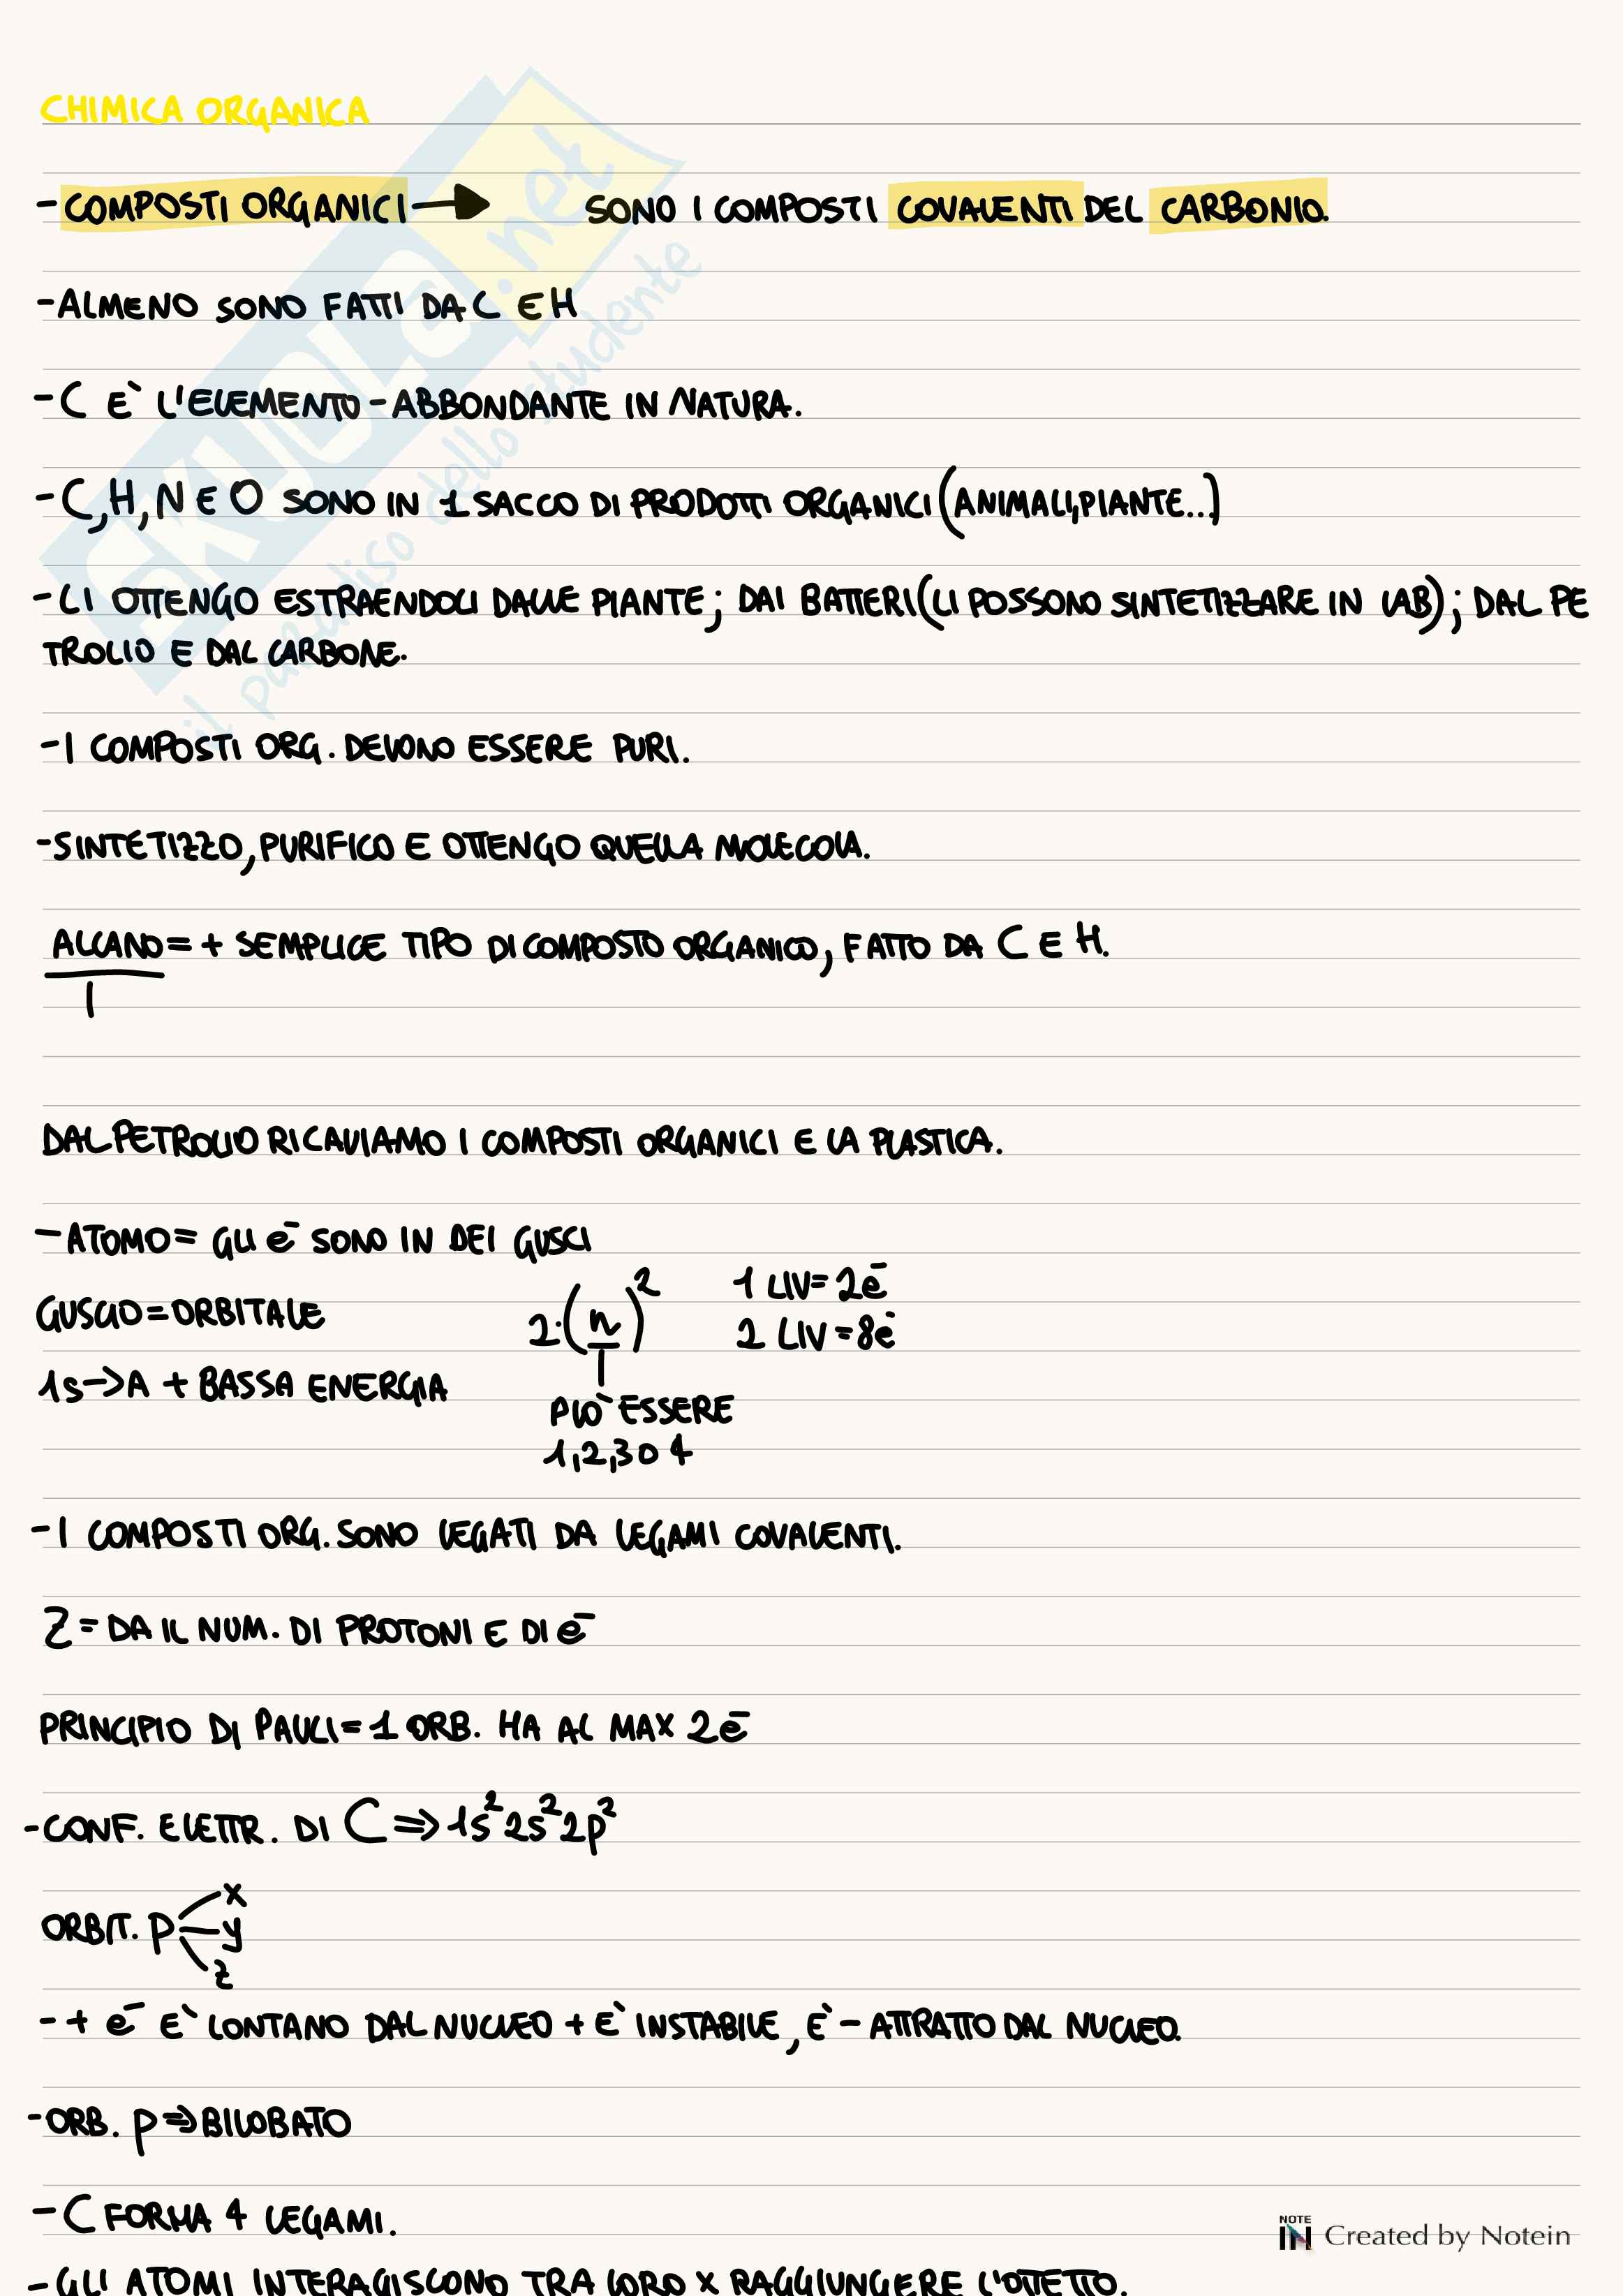 CHIMICA ORGANICA
- COMPOSTI ORGANICI → SONO I COMPOSTI COVALENTI DEL CARBONIO.
- ALMENO SONO FATTI DA C E H
- C E' L'ELEMENTO - ABBONDANTE IN NATURA.
- C, H, N E O SONO IN 1 SACCO DI PRODOTTI ORGANICI (ANIMALI, PIANTE...)
- LI OTTENGO ESTRAENDOLI DALLE PIANTE; DAI BATTERI (LI POSSONO SINTETIZZARE IN LAB); DAL PE
TROLIO E DAL CARBONE.
- I COMPOSTI ORG. DEVONO ESSERE PURI.
- SINTETIZZO, PURIFICO E OTTENGO QUELLA MOLECOLA.
ALCANO = + SEMPLICE TIPO DI COMPOSTO ORGANICO, FATTO DA C E H.
DAL PETROLIO RICAVIAMO I COMPOSTI ORGANICI E LA PLASTICA.
- ATOMO = GLI e⁻ SONO IN DEI GUSCI
GUSCIO = ORBITALE 2·(n)² 1 LIV = 2e⁻
2 LIV = 8e⁻
1s → A + BASSA ENERGIA
PUO' ESSERE
1, 2, 3 O 4
- I COMPOSTI ORG. SONO LEGATI DA LEGAMI COVALENTI.
Z = DA IL NUM. DI PROTONI E DI e⁻
PRINCIPIO DI PAULI = 1 ORB. HA AL MAX 2e⁻
- CONF. ELETTR. DI C ⇒ 1s² 2s² 2p²
ORBIT. p x
y
z
- + e⁻ E' LONTANO DAL NUCLEO + E' INSTABILE, E' - ATTRATTO DAL NUCLEO.
- ORB. p ⇒ BILOBATO
- C FORMA 4 LEGAMI.
- GLI ATOMI INTERAGISCONO TRA LORO X RAGGIUNGERE L'OTTETTO.
SKUOLA.net
il paradiso dello studente
NOTE IN Created by Notein